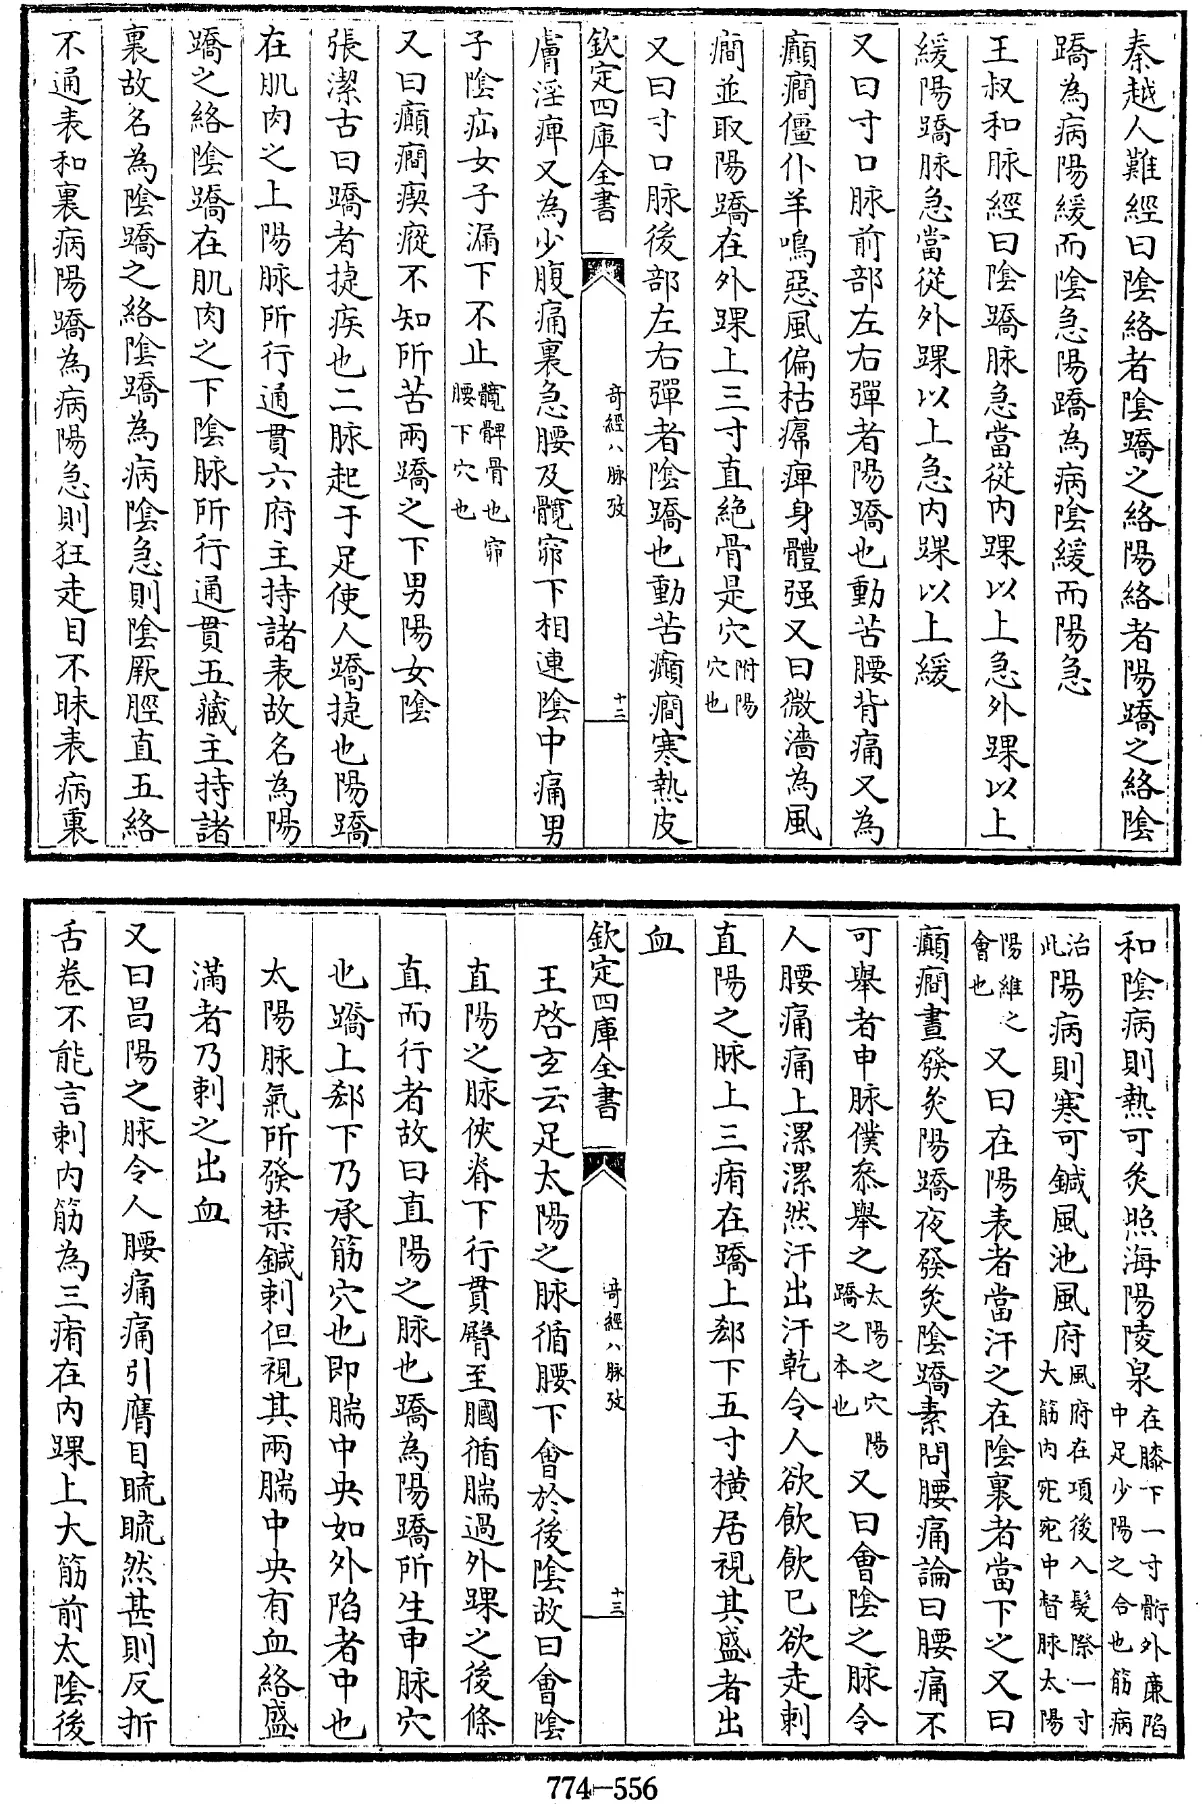 秦越人難經曰陰絡者陰蹻之絡陽絡者陽蹻之絡陰
蹻為病陽緩而陰急陽蹻為病陰緩而陽急
王叔和脉經曰陰蹻脉急當從内踝以上急外踝以上
緩陽蹻脉急當從外踝以上急内踝以上緩
又曰寸口脉前部左右彈者陽蹻也動苦腰背痛又為
癲癇僵仆羊鳴惡風偏枯㿏痺身體强又曰微濇為風
癇並取陽蹻在外踝上三寸直絶骨是穴附陽穴也
又曰寸口脉後部左右彈者陰蹻也動苦癲癇寒熱皮
欽定四庫全書
奇經八脉攷
十三
膚淫痺又為少腹痛裏急腰及髖窌下相連陰中痛男
子陰疝女子漏下不止髖髀骨也窌腰下穴也
又曰癲癇瘈瘲不知所苦兩蹻之下男陽女陰
張潔古曰蹻者捷疾也二脉起于足使人蹻捷也陽蹻
在肌肉之上陽脉所行通貫六府主持諸表故名為陽
蹻之絡陰蹻在肌肉之下陰脉所行通貫五藏主持諸
裏故名為陰蹻之絡陰蹻為病陰急則陰厥脛直五絡
不通表和裏病陽蹻為病陽急則狂走目不昧表病裏
和陰病則熱可灸照海陽陵泉在膝下一寸䯒外廉陷中足少陽之合也筋病
治此陽病則寒可鍼風池風府風府在項後入髮際一寸大筋内宛宛中督脉太陽
陽維之會也又曰在陽表者當汗之在陰裏者當下之又曰
癲癇晝發灸陽蹻夜發灸陰蹻素問腰痛論曰腰痛不
可舉者申脉僕叅舉之太陽之穴陽蹻之本也又曰會陰之脉令
人腰痛痛上漯漯然汗出汗乾令人欲飲飲已欲走刺
直陽之脉上三痏在蹻上郄下五寸横居視其盛者出
血
欽定四庫全書
奇經八脉攷
十三
王啓玄云足太陽之脉循腰下會於後陰故曰會陰
直陽之脉俠脊下行貫臀至膕循腨過外踝之後條
直而行者故曰直陽之脉也蹻為陽蹻所生申脉穴
也蹻上郄下乃承筋穴也即腨中央如外陷者中也
太陽脉氣所發禁鍼刺但視其兩腨中央有血絡盛
滿者乃刺之出血
又曰昌陽之脉令人腰痛痛引膺目䀮䀮然甚則反折
舌卷不能言刺内筋為三痏在内踝上大筋前太陰後
774—556